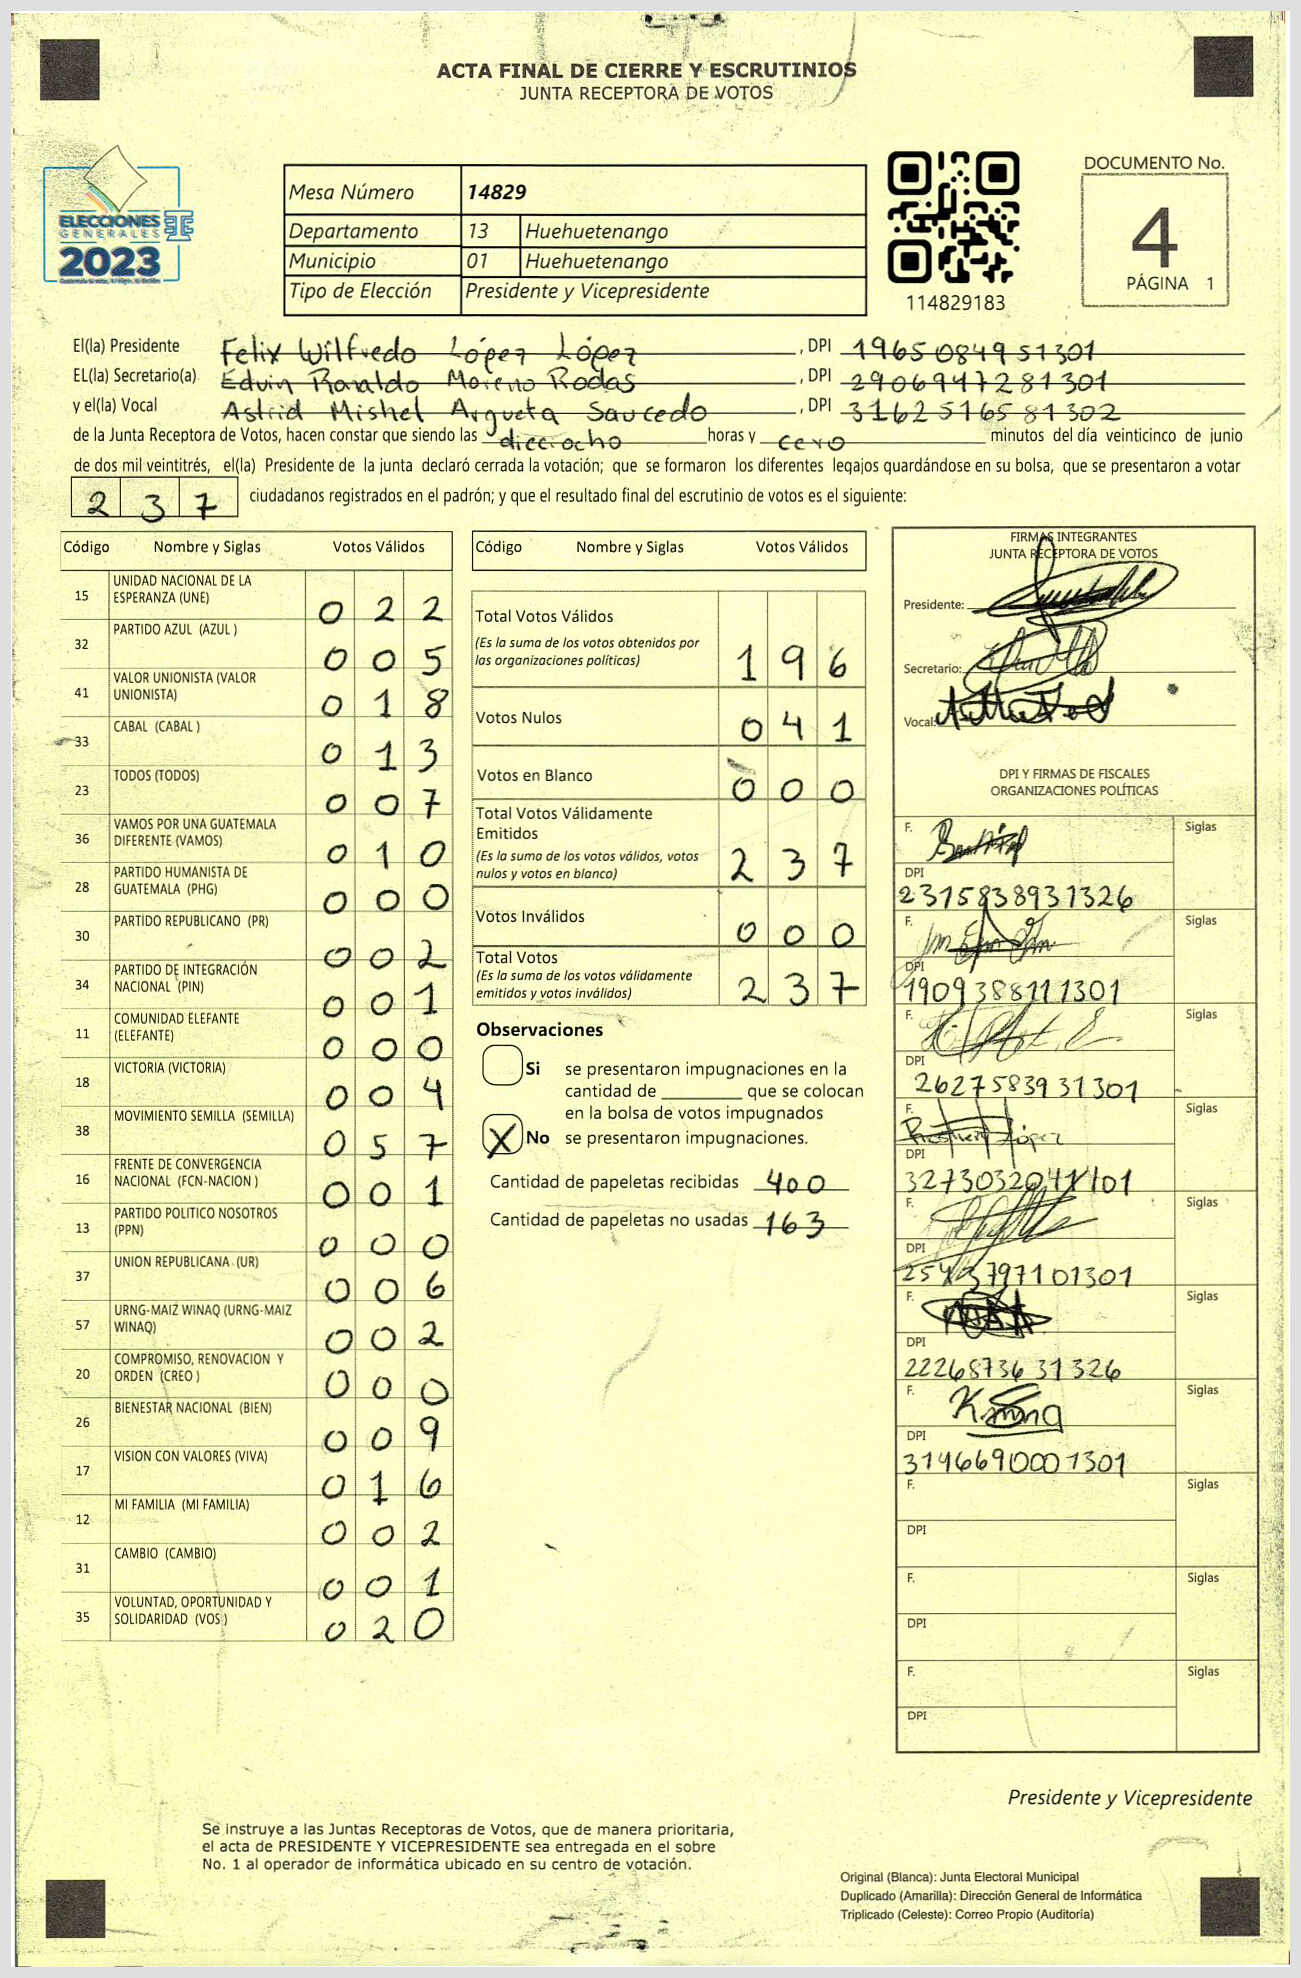 ACTA FINAL DE CIERRE Y ESCRUTINIOS
JUNTA RECEPTORA DE VOTOS
ELECCIONES
GENERALES
2023
Mesa Número 14829
Departamento 13 Huehuetenango
Municipio 01 Huehuetenango
Tipo de Elección Presidente y Vicepresidente
114829183
DOCUMENTO No.
4
PÁGINA 1
El(la) Presidente Felix Wilfredo López López , DPI 1965084951301
EL(la) Secretario(a) Edvin Ronaldo Moreno Rodas , DPI 2906947281301
y el(la) Vocal Astrid Mishel Argueta Saucedo , DPI 3162516581302
de la Junta Receptora de Votos, hacen constar que siendo las dieciocho horas y cero minutos del día veinticinco de junio
de dos mil veintitrés, el(la) Presidente de la junta declaró cerrada la votación; que se formaron los diferentes legajos guardándose en su bolsa, que se presentaron a votar
237 ciudadanos registrados en el padrón; y que el resultado final del escrutinio de votos es el siguiente:
Código Nombre y Siglas Votos Válidos
15 UNIDAD NACIONAL DE LA ESPERANZA (UNE) 022
32 PARTIDO AZUL (AZUL ) 005
41 VALOR UNIONISTA (VALOR UNIONISTA) 018
33 CABAL (CABAL ) 013
23 TODOS (TODOS) 007
36 VAMOS POR UNA GUATEMALA DIFERENTE (VAMOS) 010
28 PARTIDO HUMANISTA DE GUATEMALA (PHG) 000
30 PARTIDO REPUBLICANO (PR) 002
34 PARTIDO DE INTEGRACIÓN NACIONAL (PIN) 001
11 COMUNIDAD ELEFANTE (ELEFANTE) 000
18 VICTORIA (VICTORIA) 004
38 MOVIMIENTO SEMILLA (SEMILLA) 057
16 FRENTE DE CONVERGENCIA NACIONAL (FCN-NACION ) 001
13 PARTIDO POLITICO NOSOTROS (PPN) 000
37 UNION REPUBLICANA (UR) 006
57 URNG-MAIZ WINAQ (URNG-MAIZ WINAQ) 002
20 COMPROMISO, RENOVACION Y ORDEN (CREO ) 000
26 BIENESTAR NACIONAL (BIEN) 009
17 VISION CON VALORES (VIVA) 016
12 MI FAMILIA (MI FAMILIA) 002
31 CAMBIO (CAMBIO) 001
35 VOLUNTAD, OPORTUNIDAD Y SOLIDARIDAD (VOS ) 020
Código Nombre y Siglas Votos Válidos
Total Votos Válidos
(Es la suma de los votos obtenidos por
las organizaciones políticas) 196
Votos Nulos 041
Votos en Blanco 000
Total Votos Válidamente
Emitidos
(Es la suma de los votos válidos, votos
nulos y votos en blanco) 237
Votos Inválidos 000
Total Votos
(Es la suma de los votos válidamente
emitidos y votos inválidos) 237
Observaciones
Si se presentaron impugnaciones en la
cantidad de ________ que se colocan
en la bolsa de votos impugnados
X No se presentaron impugnaciones.
Cantidad de papeletas recibidas 400
Cantidad de papeletas no usadas 163
FIRMAS INTEGRANTES
JUNTA RECEPTORA DE VOTOS
Presidente:
Secretario:
Vocal:
DPI Y FIRMAS DE FISCALES
ORGANIZACIONES POLÍTICAS
F. Siglas
DPI
2315838931326
F. Siglas
DPI
1909388111301
F. Siglas
DPI
2627583931301
F. López Siglas
DPI
F. Siglas
DPI
F. Siglas
DPI
2226873631326
F. Siglas
DPI
3146690001301
F. Siglas
DPI
F. Siglas
DPI
F. Siglas
DPI
Presidente y Vicepresidente
Se instruye a las Juntas Receptoras de Votos, que de manera prioritaria,
el acta de PRESIDENTE Y VICEPRESIDENTE sea entregada en el sobre
No. 1 al operador de informática ubicado en su centro de votación.
Original (Blanca): Junta Electoral Municipal
Duplicado (Amarilla): Dirección General de Informática
Triplicado (Celeste): Correo Propio (Auditoría)